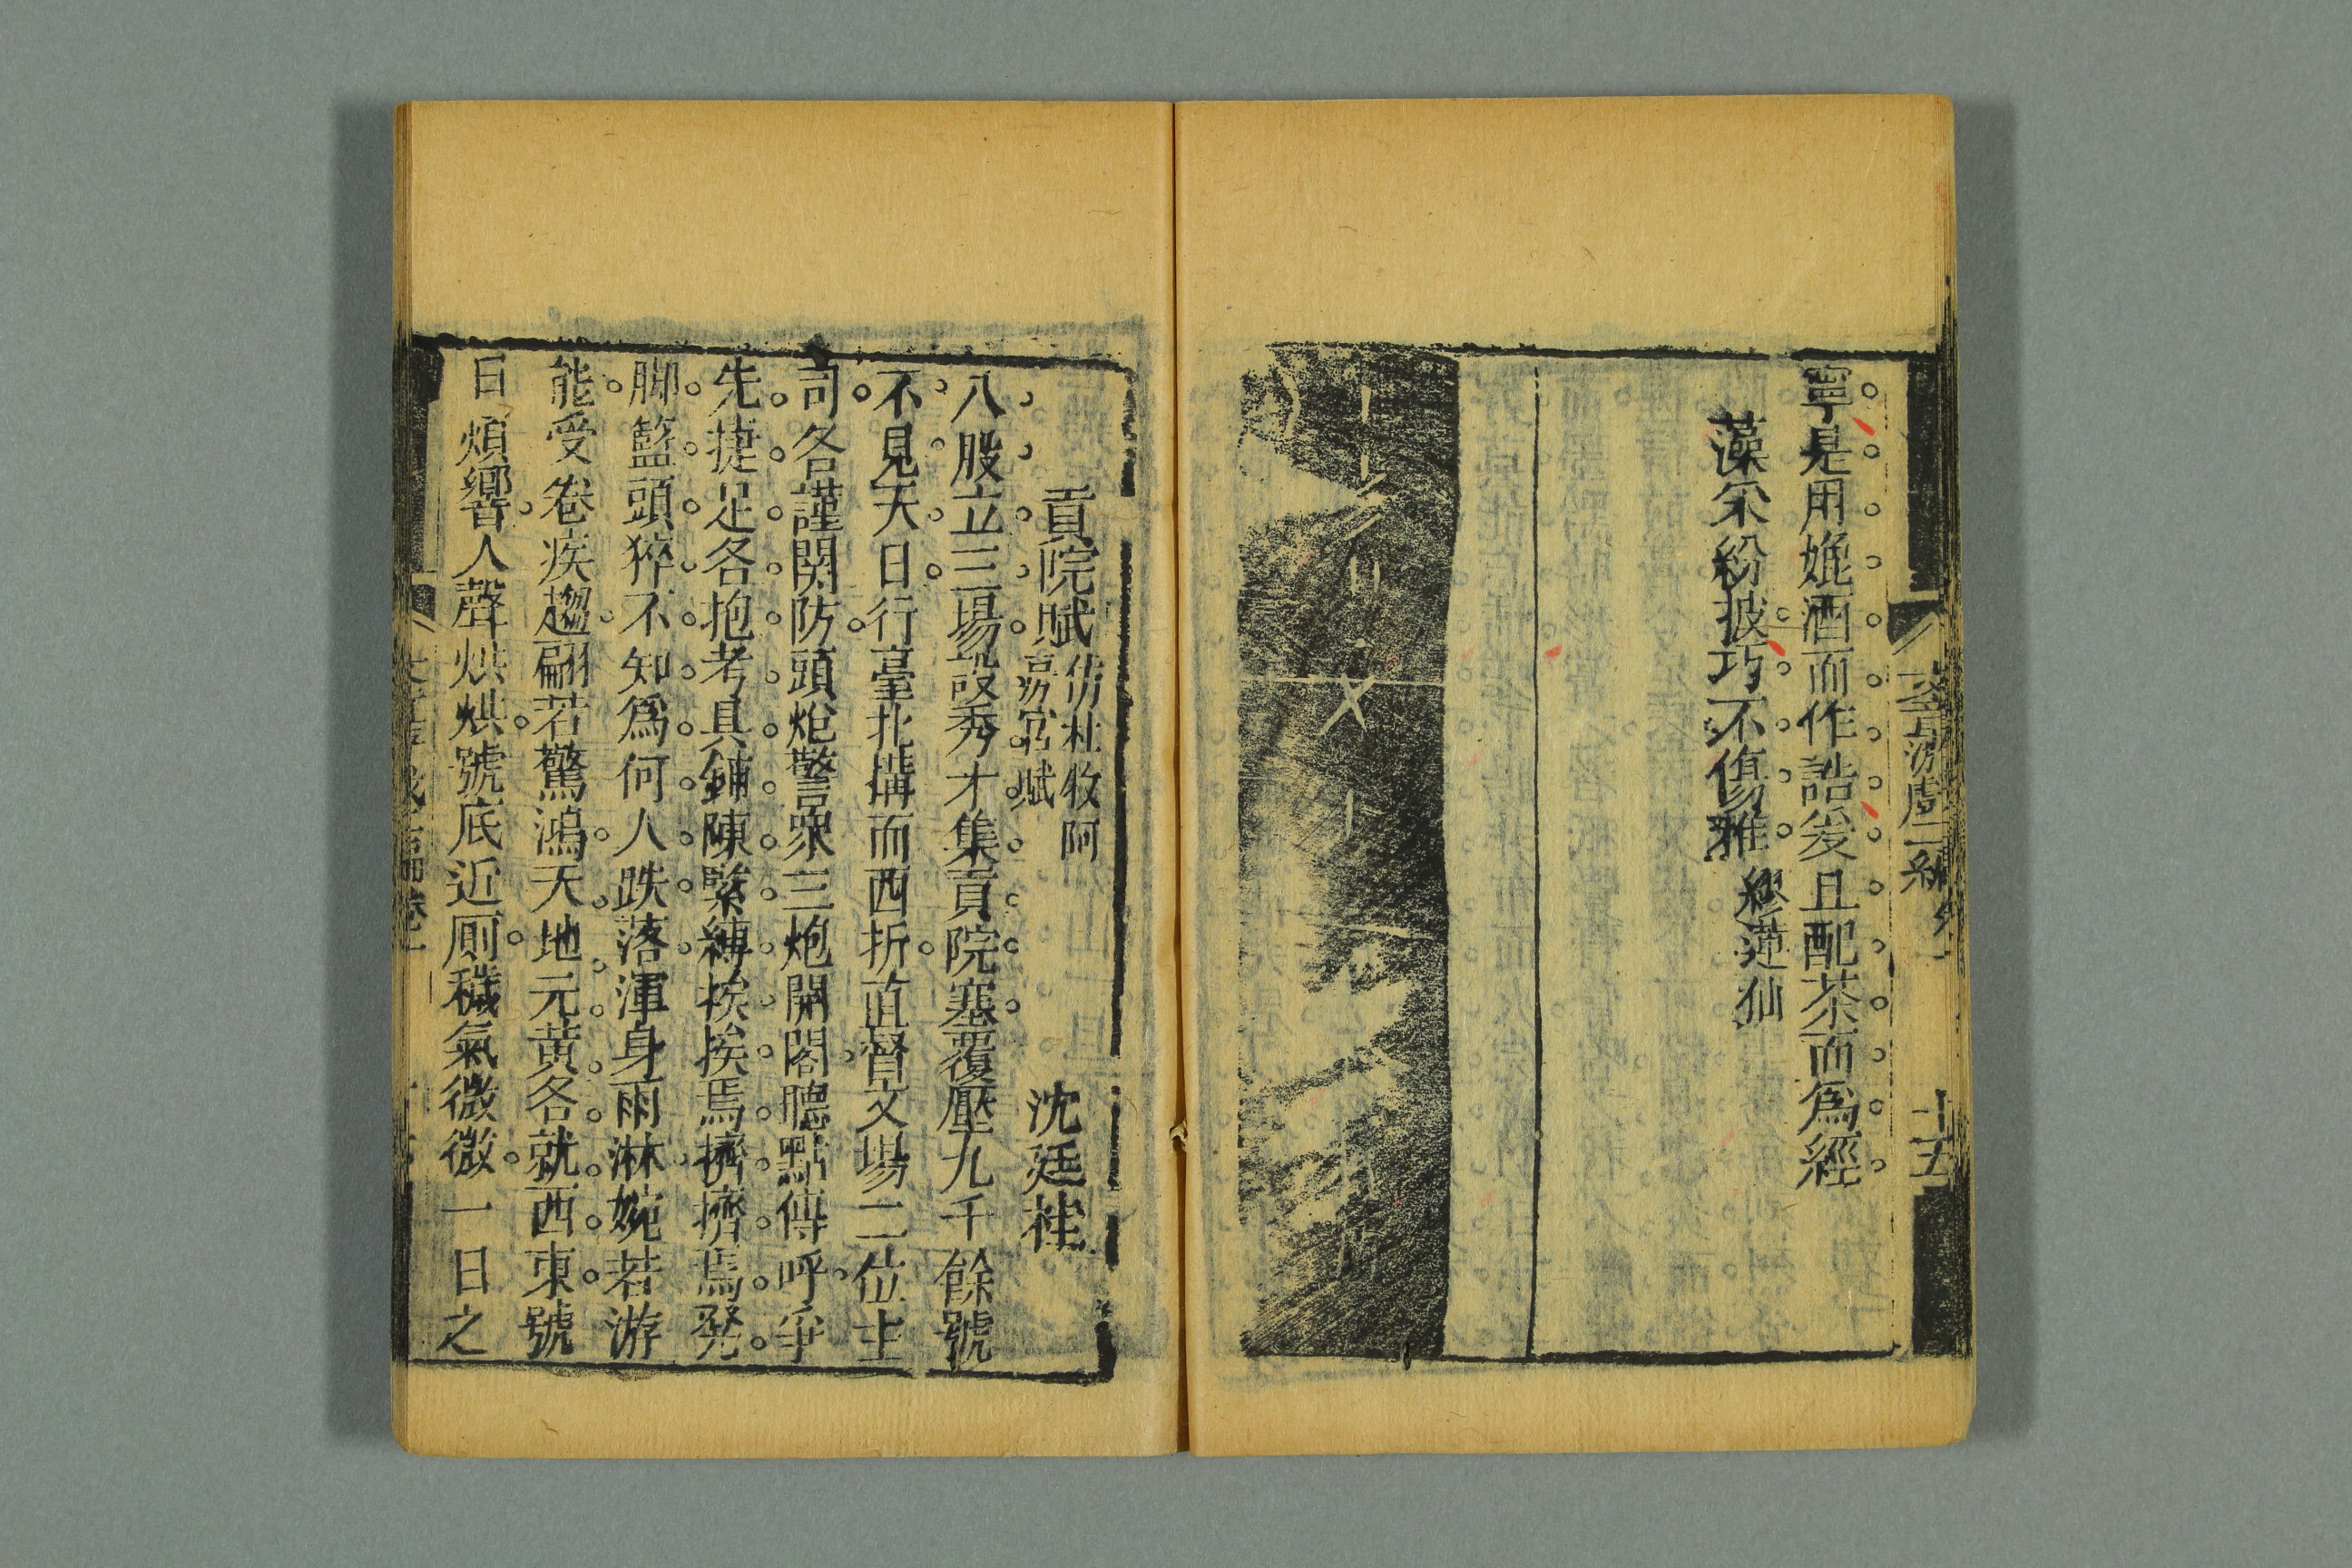 寧是用媲酒而作誥爰且配茶而爲經
藻采紛披巧不傷雅 繆蓮仙
十五
貢院賦 仿杜牧阿房宮賦 沈廷桂
八股立三場設秀才集貢院塞覆壓九千餘號
不見天日行臺北搆而西折直督文場二位主
司各謹關防頭炮警衆三炮開閣聽點傳呼爭
先捷足各抱考具鋪陳緊縛挨挨焉擠擠焉發
脚籃頭猝不知爲何人跌落渾身雨淋婉若游
能受卷疾趨翩若驚鴻天地元黃各就西東號
日煩響人聲烘烘號底近厠穢氣微微一日之